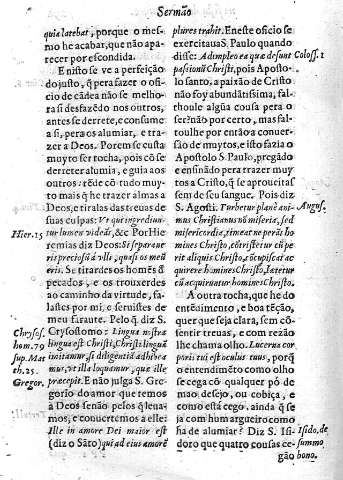 Sermão
quia latebat, porque o mesmo
mo he acabar, que não aparecer
recer por escondida.
E nisto se ve a perfeição
do justo, q̃ pera fazer o officio
de cãdea não se melhora
si desfazẽdo nos outros,
antes se derrete, e consume
a si, pera os alumiar, e trazer
a Deos. Porem se custa
muyto ser tocha, pois cõ se
derreter alumia, e guia aos
outros: rẽde cõ tudo muyto
mais q̃ he trazer almas a
Deos, e tiralas das treuas de
suas culpas: Vt qui ingrediuntur
lumen videãt, &c Por Hieremias
Hier. 15
diz Deos: Si separaueris
preciosũ à vili, quasi os meũ
eris. Se titardes os homẽs d̃
peccados, e os trouxerdes
ao caminho da virtude, falastes
por mi, e seruistes de
meu faraute. Pelo q̃ diz S.
Crysostomo: Lingua nostra
Chrysos.
hom. 79
sup. Mat
th. 25.
Gregor.
lingua est Christi, Christi linguã
imitamur, si diligentiã adhibeamus,
vt illa loquamur, quæ ille
præcepit. E não julga S. Gregorio
do amor que temos
a Deos senão pelos q̃ lenamos,
e conuertemos a elle:
Ille in amore Dei maior est
(diz o Sãto) qui ad eius amorẽ
plures trahit. E neste oficio se
exercitaua S. Paulo quando
disse: Adimpleo ea quæ desunt
Coloss. 1
passionũ Christi, pois Apostolo
santo, a paixão de Cristo
não foy abundãtissima, faltoulhe
algũa cousa pera o
ser? não por certo, mas faltoulhe
por entãoa conuersão
de muytos, e isto fazia o
Apostolo S. Paulo, pregãdo
e ensinãdo pera trazer muytos
a Cristo, q̃ se aproueitassem
de seu sangue. Pois diz
S. Agosti. Turbetur planè animus
Augus.
Christianus nõ miseria, sed
misericordia, timeat ne pereãt homines
Christo, cõtristetur cũ perit
aliquis Christo, cõcupiscat acquirere
homines Christo, lætetur
cũ acquiruntur homines Christo.
A outra tocha, que he do
entẽdimento, e boa tẽção,
quer que seja clara, sem cõsentir
treuas, e com rezão
lhe chama olho. Lucerna corporis
tui est oculus tuus, porq̃
o entendimẽto como olho
se cega cõ qualquer pó de
mao desejo, ou cobiça, e
como està cego, ainda q̃ seja
com hum argueiro como
ha de alumiar? Diz S. Isidoro
Isido. de
summo
bono.
que quatro cousas ce-
gão